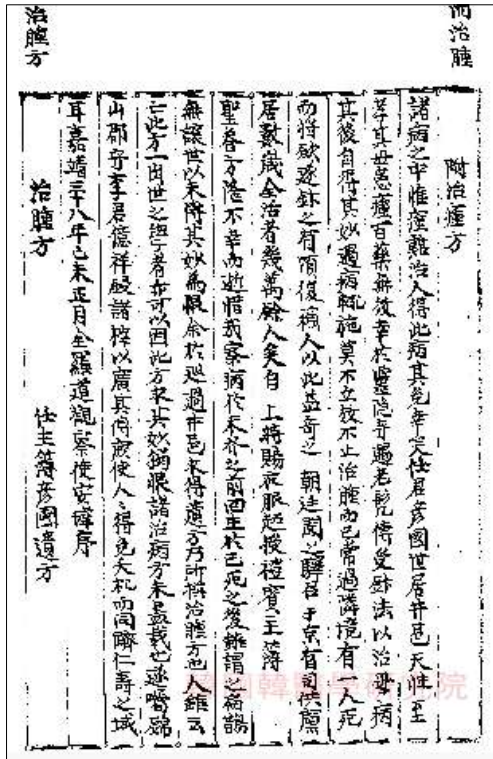 而治腫
附治腫方
諸病之中惟瘇難治人得此病其免幸矣任君彦國世居井邑天性至
孝其母患瘇百藥無效幸於靈隱寺遇老髡傳受針法以治母病
其後自得其妙遇病輒施莫不立效不止治腫而已常過隣境有一人死
而將斂逐針之有頃復穪人以此益奇之 朝廷聞之驛召于京有司供廩
居數歲全活者幾萬餘人矣自 上特賜衣服超授禮賓主簿
聖眷方隆不幸而逝惜哉察病於未形之前回生於已死之後雖謂之扁鵲
無讓世以未傳其妙爲恨余於巡過井邑求得遺方乃所撰治腫方也人雖云
亡此方一出世之學者亦可以因此方求其妙
山郡守李君億祥鋟諸梓以廣其傳庶使人人得免夭札而同躋仁壽之域
耳嘉靖三十八年己未正月全羅道觀察使安瑋序
治腫方
任主簿彦國遺方
治腫方
韓國韓醫學硏究院